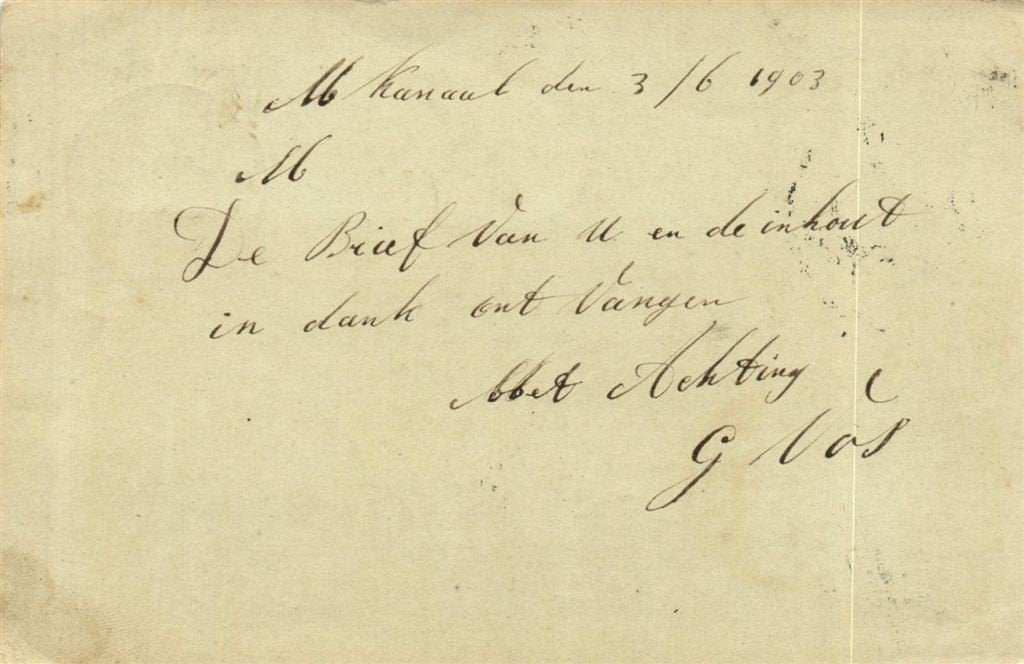 M kanaal den 3/6 1903
M
De Brief Van U en de inhout
in dank ont Vangen
Met Achting
G Vos